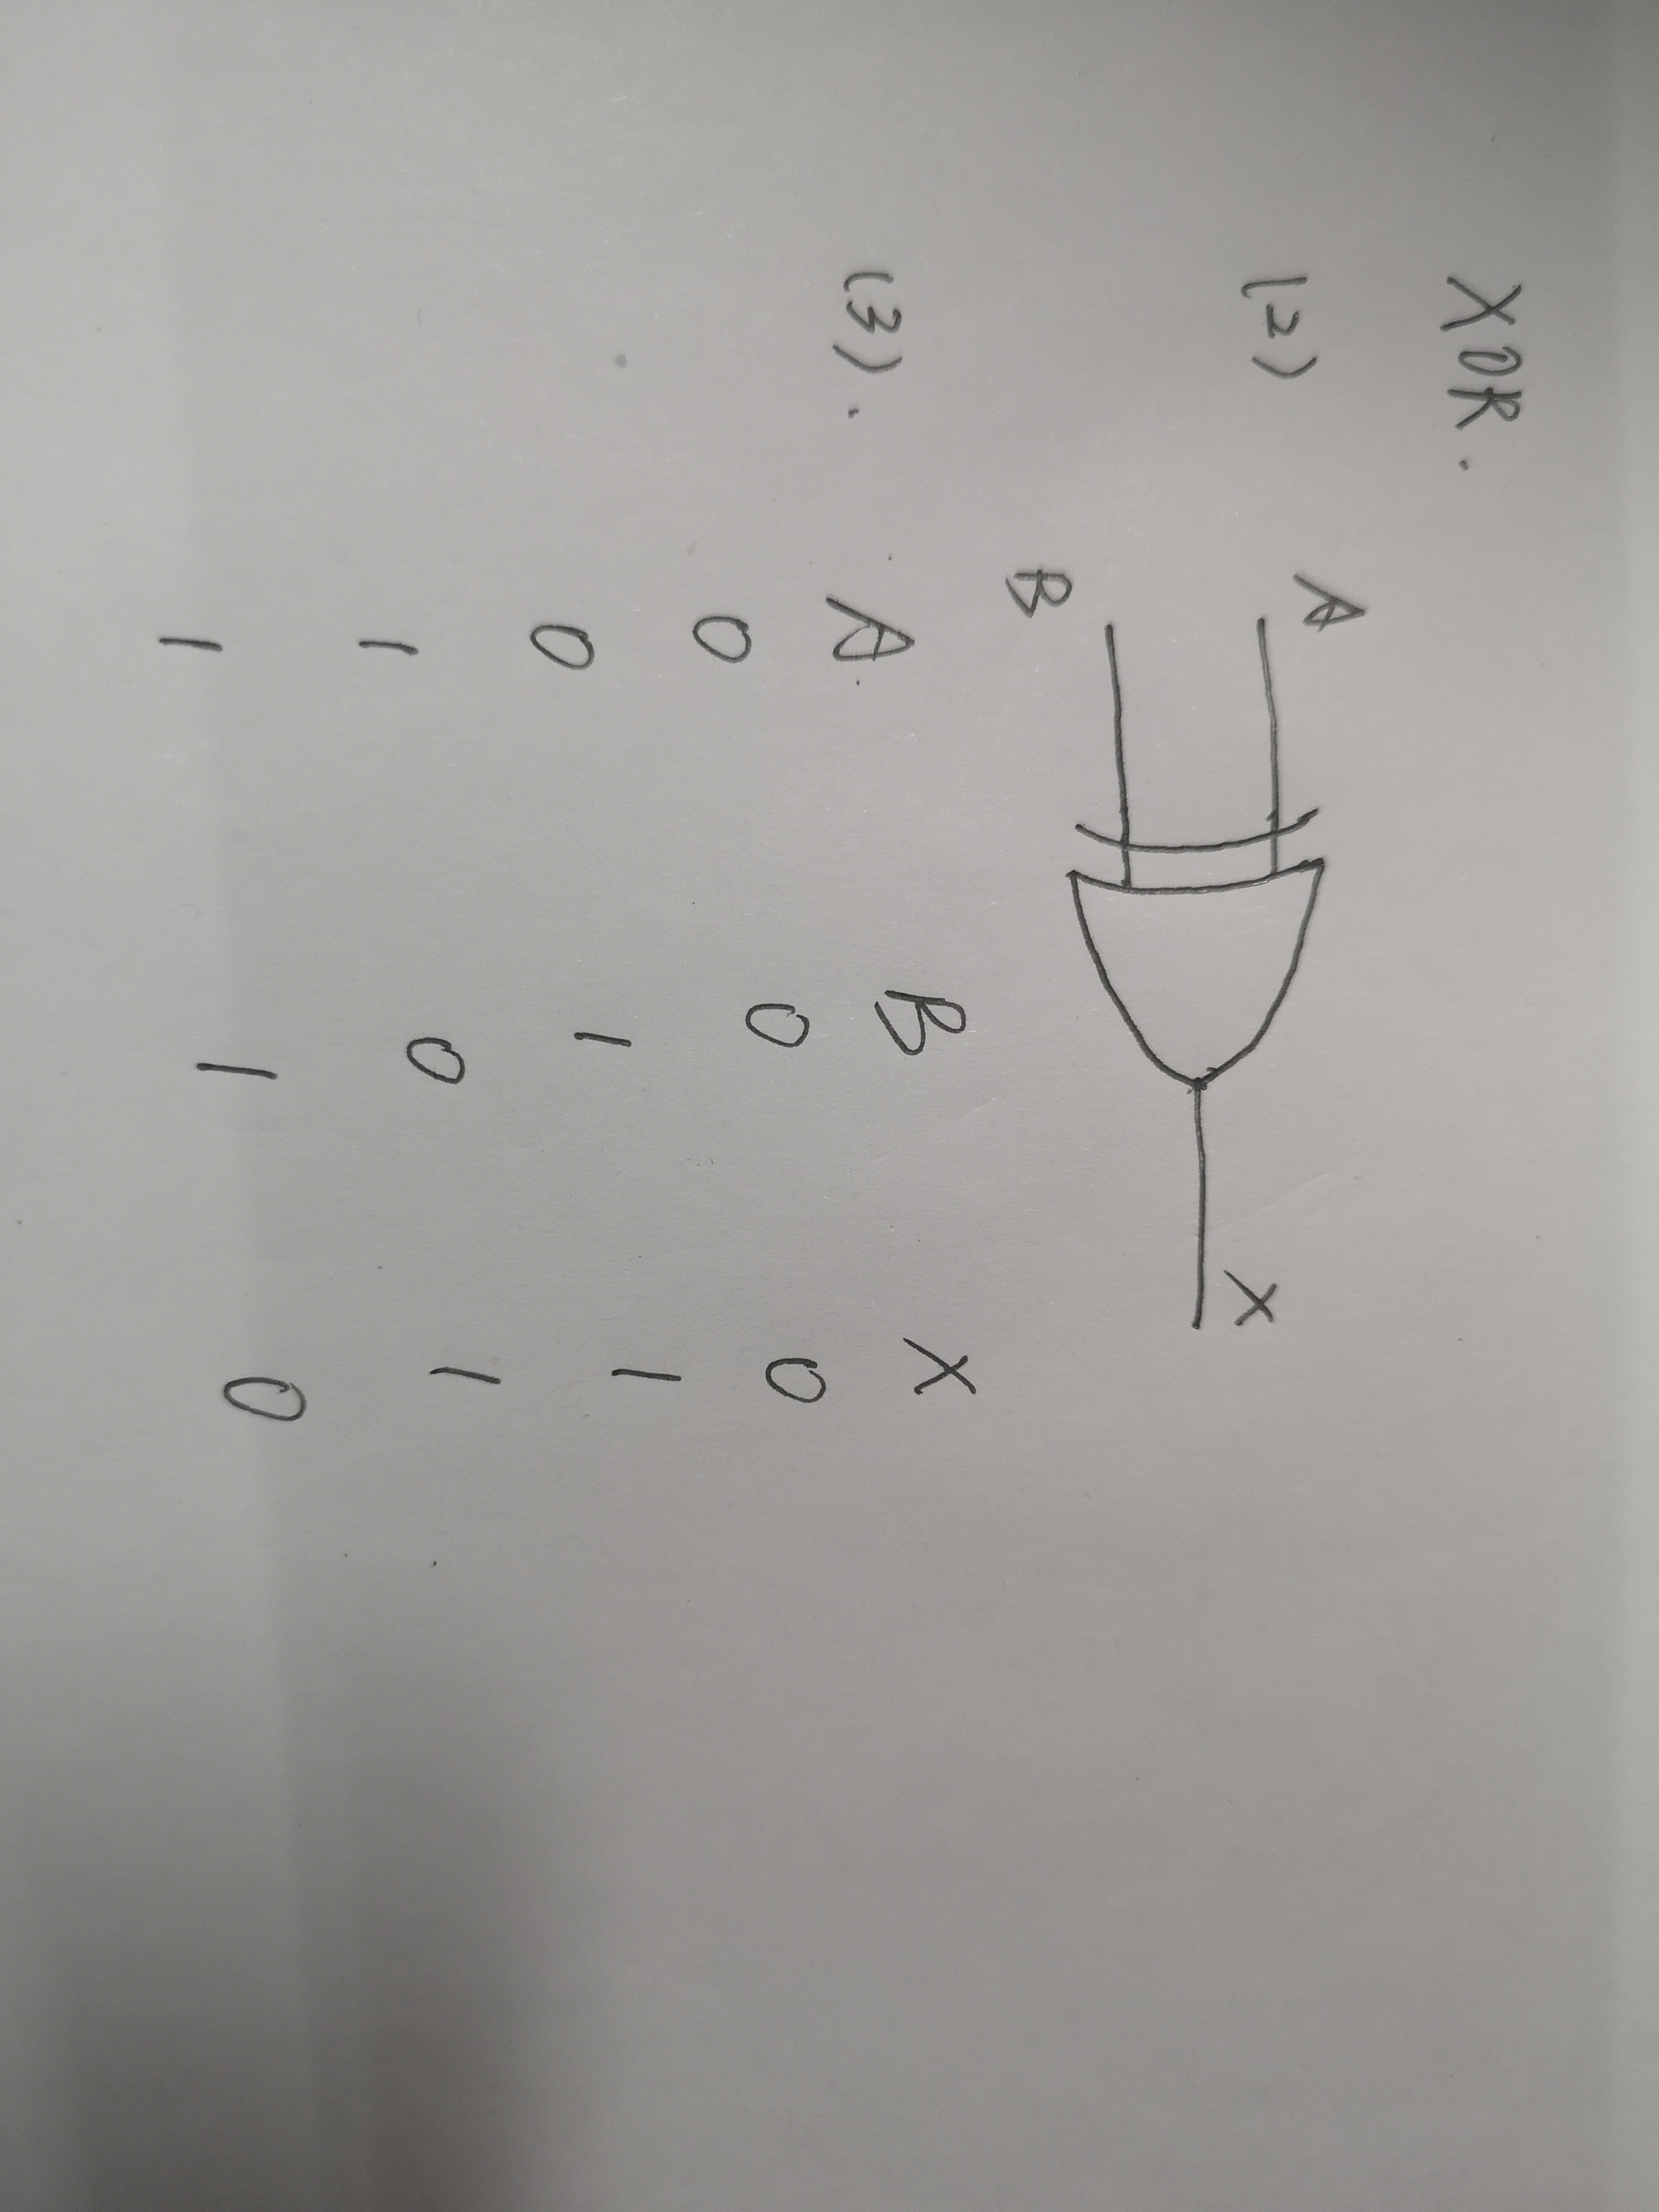 XOR.
(2) A X
B
(3). A. B X
0 0 0
0 1 1
1 0 1
1 1 0